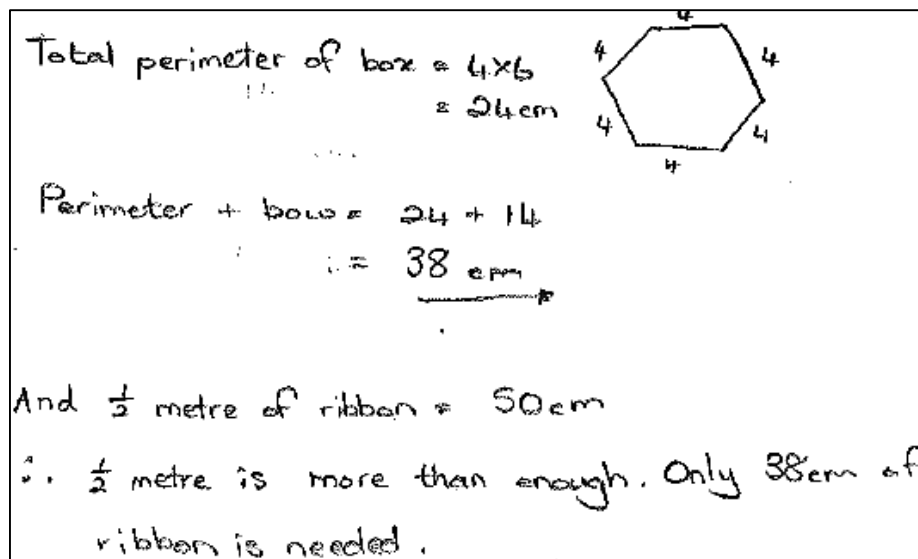 Total perimeter of box = 4×6
= 24cm
4
4
4
4
4
4
Perimeter + bow = 24 + 14
= 38 cm
And ½ metre of ribbon = 50cm
∴ ½ metre is more than enough. Only 38cm of
ribbon is needed.